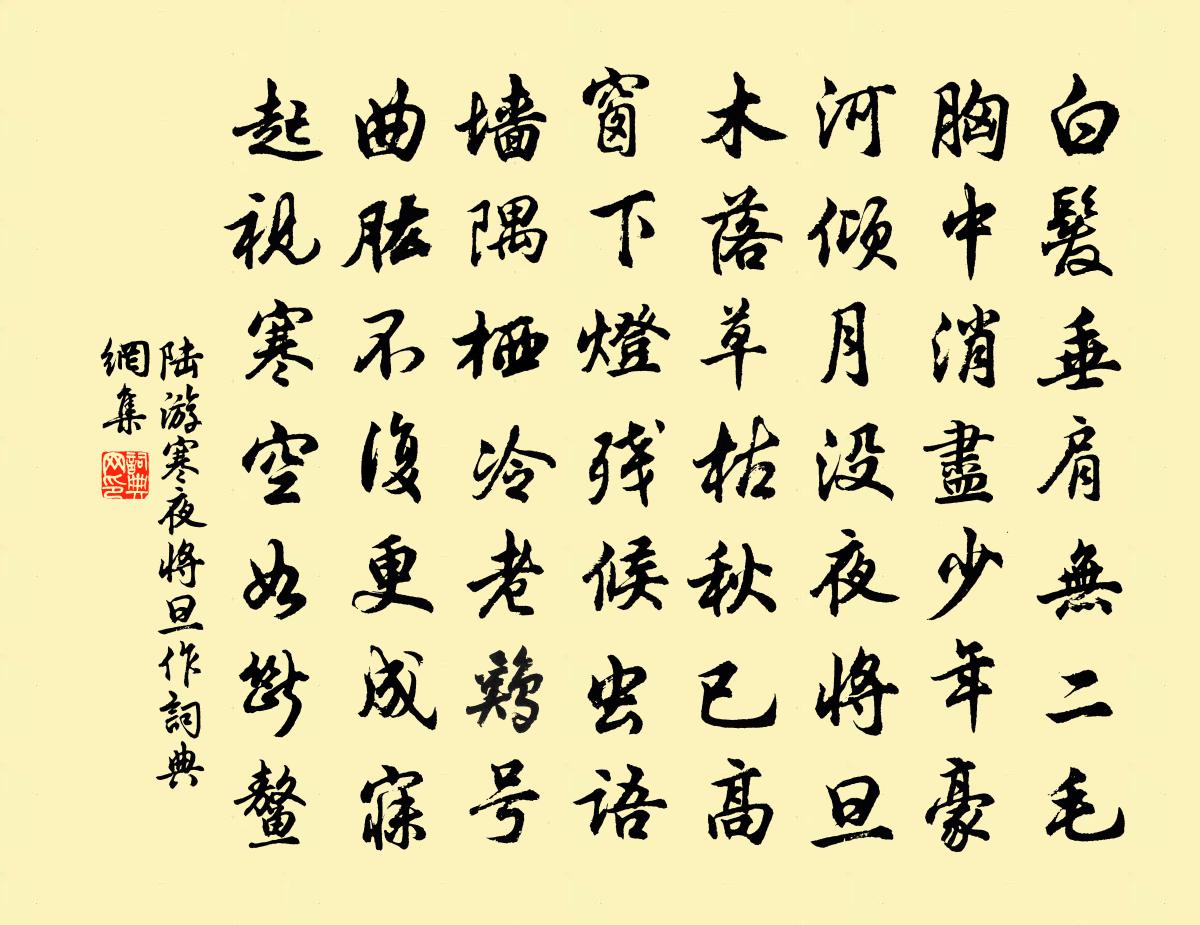 白髮垂肩無二毛
胸中消盡少年豪
河傾月没夜將旦
木落草枯秋已高
窗下燈残候虫语
墙隅栖冷老鷄号
曲肱不復更成寐
起視寒空如斷鰲
陆游寒夜將旦作詞典
網集
詞典
网印